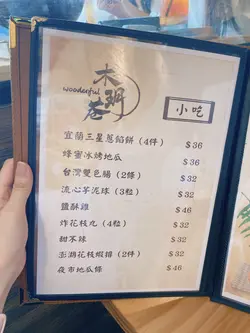 木玥巷
wooderful
小吃
宜蘭三星蔥餡餅（4件） $36
蜂蜜冰烤地瓜 $36
台灣雙色腸（2條） $32
流心芋泥球（3粒） $32
鹽酥雞 $46
炸花枝丸（4粒） $32
甜不辣 $32
澎湖花枝蝦排（2件） $32
夜市地瓜條 $46